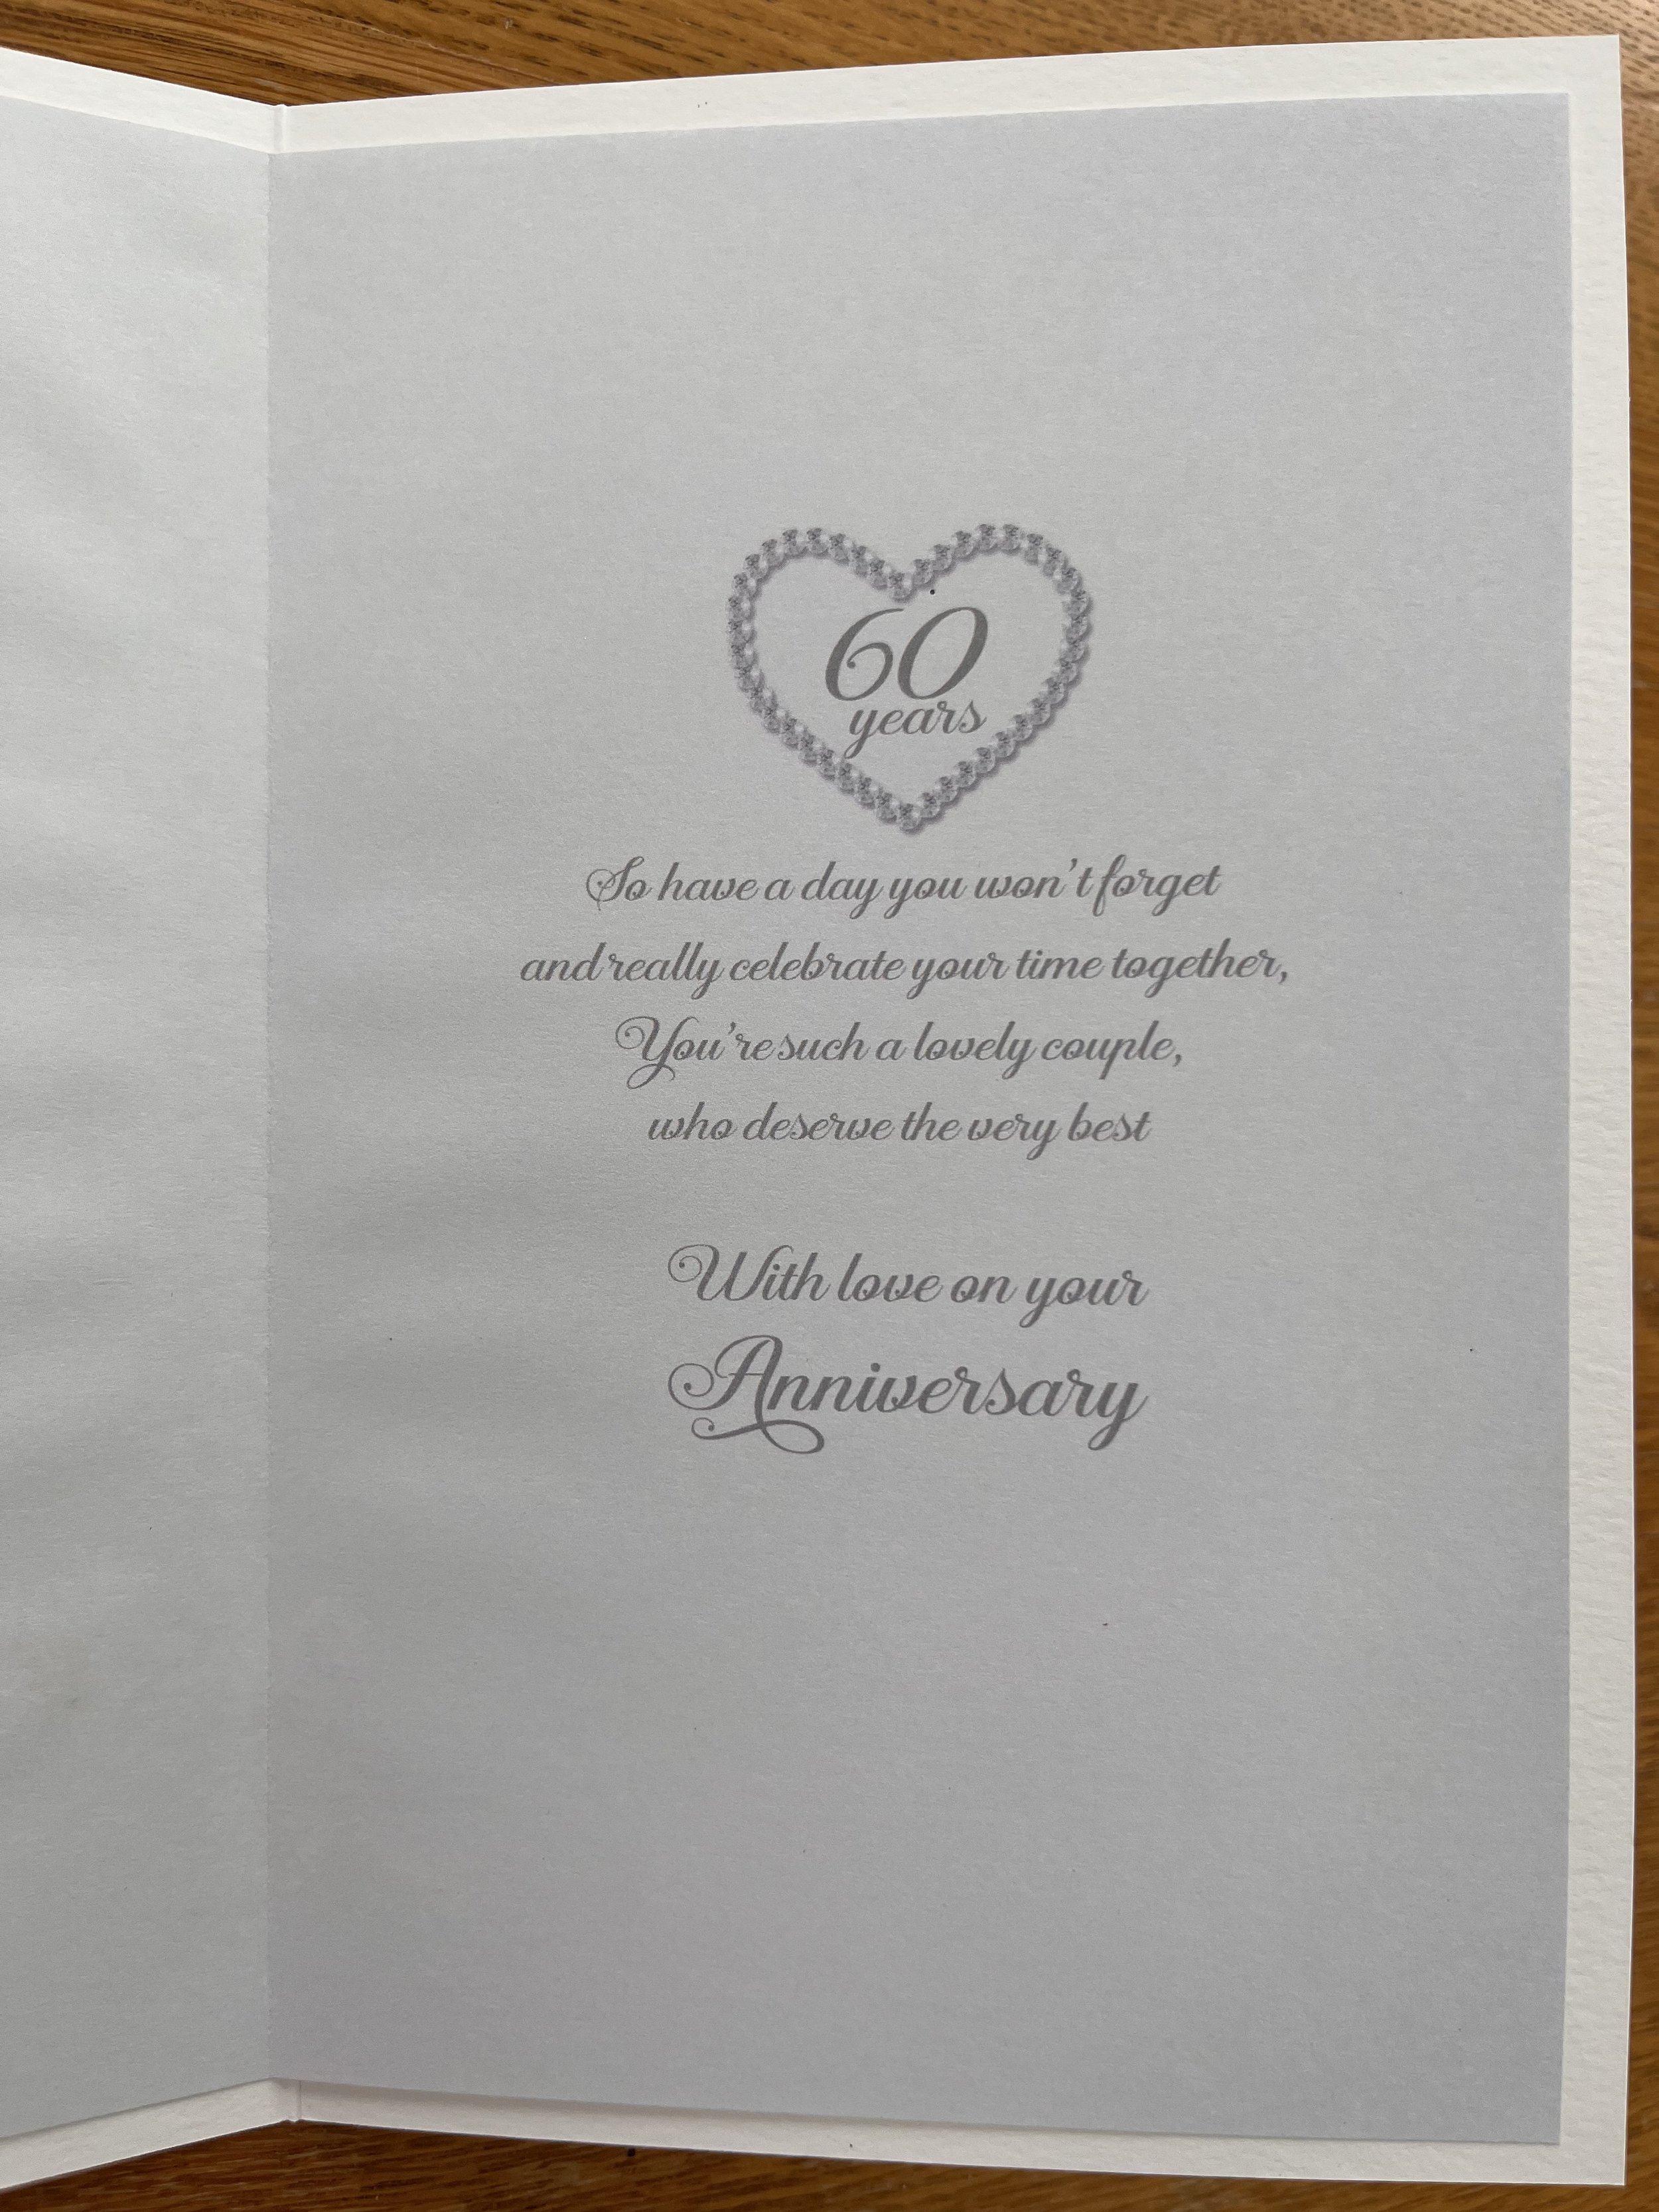 60
years
So have a day you won't forget
and really celebrate your time together,
You're such a lovely couple,
who deserve the very best
With love on your
Anniversary